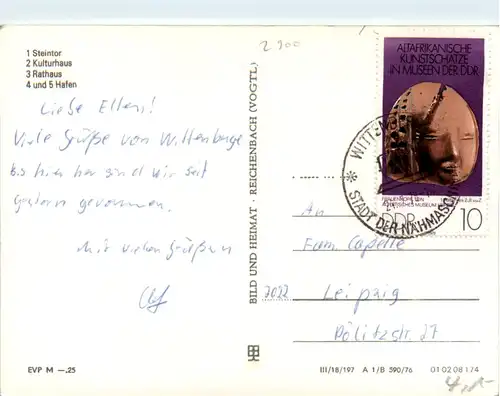 1 Steintor
2 Kulturhaus
3 Rathaus
4 und 5 Hafen
Liebe Eltern!
Viele Grüße von Wittenberge
bis hier her sind wir seit
gestern
Mit vielen Grüßen
EVP M —.25
BILD UND HEIMAT · REICHENBACH (VOGTL)
2900
ALTAFRIKANISCHE
KUNSTSCHÄTZE
IN MUSEEN DER DDR
10
DDR
WITTENB
* STADT DER NÄHMASCHI
An
Fam. Capelle
7022 Leipzig
Pölitzstr. 27
III/18/197 A 1/B 590/76 01 02 08 174
4,-